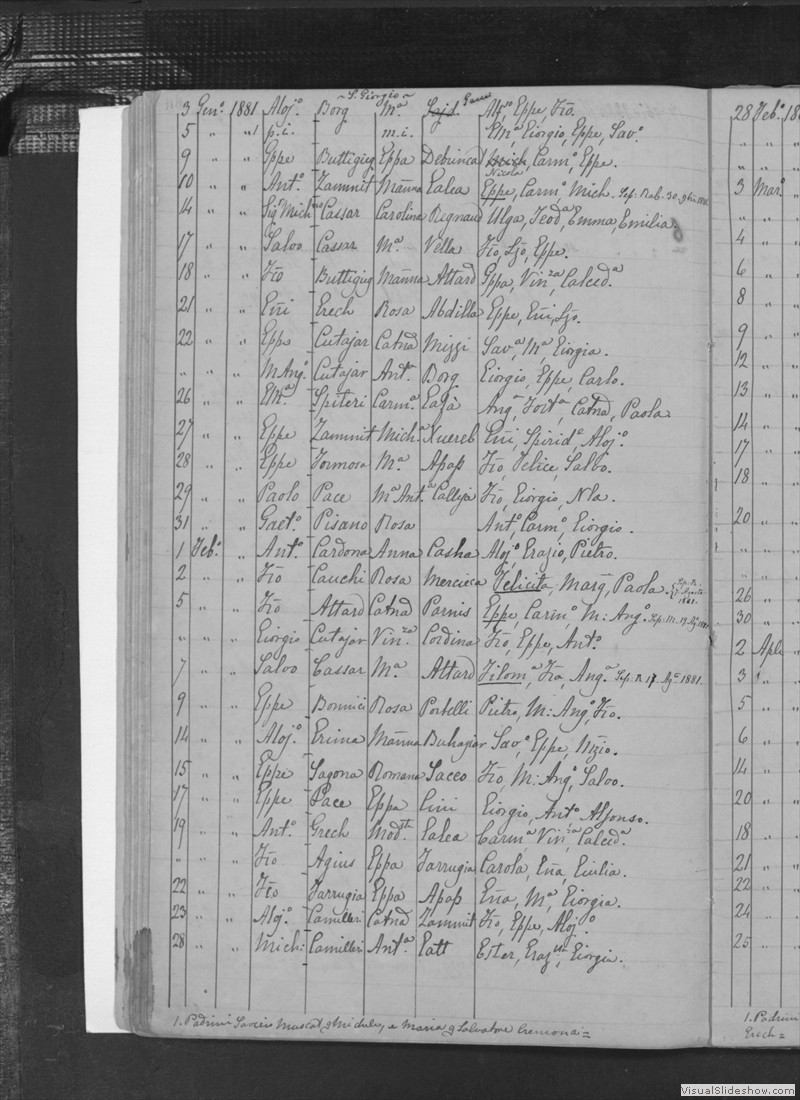 ~ S. Giorgio ~
3 Gen.º 1881 Aloj.º Borg Mª Gauci Alf.so, Eppe, Fco.
5 " " 1 p.i. m.i. Emª, Giorgio, Eppe, Sav.º
9 " " Gppe Buttigieg Eppa Debrincat Carm.º, Eppe.
Nicola
10 " " Ant.º Zammit Marnna Galea Eppe, Carm.º Mich.
14 " " Sig. Mich. Cassar Carolina Regnaud Olga, Teodª, Emma, Emilia.
17 " " Salvo Cassar Mª Vella Fco, Ljo, Eppe.
18 " " Fco Buttigieg Marnna Attard Gppa, Vin.zª, Calcedª
21 " " Eñi Grech Rosa Abdilla Eppe, Eñi, Ljo.
22 " " Eppe Cutajar Catna Mizzi Savª, Mª Giorgia.
" " " M. Ang.º Cutajar Antª Borg Giorgio, Eppe, Carlo.
26 " " Em.ª Spiteri Carmª Gafà Angª, Fortª, Catna, Paola.
27 " " Eppe Zammit Michª Xuereb Eñi, Spirid.º, Aloj.º
28 " " Eppe Formosa Mª Apap Fco, Felice, Salvo.
29 " " Paolo Pace Mª Ant.ª Calleja Fco, Giorgio, Nla.
31 " " Gaet.º Pisano Rosa Ant.º, Carm.º, Giorgio.
1 Feb.º " Ant.º Cardona Anna Casha Aloj.º, Grazio, Pietro.
2 " " Fco Cauchi Rosa Mercieca Felicita, Marg, Paola
5 " " Fco Attard Catna Parnis Eppe, Carm.º M: Ang.º
" " " Giorgio Cutajar Vin.zª Cordina Fco, Eppe, Ant.º
7 " " Salvo Cassar Mª Attard Filomª, Fca, Angª Sep: R. 17 Ag.º 1881.
9 " " Eppe Bonnici Rosa Portelli Pietro, M: Ang.º, Fco.
14 " " Aloj.º Grima Marnna Buhagiar Sav.º, Eppe, Nizio.
15 " " Eppe Sagona Romana Sacco Fco, M: Ang.º, Salvo.
17 " " Eppe Pace Eppa Cini Giorgio, Ant.º Alfonso.
19 " " Ant.º Grech Mod.sta Galea Carmª, Vin.zª, Calcedª
" " " Fco Agius Eppa Farrugia Carola, Eña, Giulia.
22 " " Fco Farrugia Eppa Apap Eña, Mª, Giorgia.
23 " " Aloj.º Camilleri Catna Zammit Fco, Eppe, Aloj.º
28 " " Mich: Camilleri Ant.ª Gatt Ester, Giorgia.
1. Padrini Saverio Muscat q. Michele, e Maria q. Salvatore Cremona =
28 Feb.º 18
3 Mar.º
4 "
6 "
8 "
9 "
12 "
13 "
14 "
17 "
18 "
20 "
26 "
30 "
2 Aple
3 "
5 "
6 "
14 "
20 "
18 "
21 "
22 "
24 "
25 "
1. Padrini
Grech =
VisualSlideshow.com